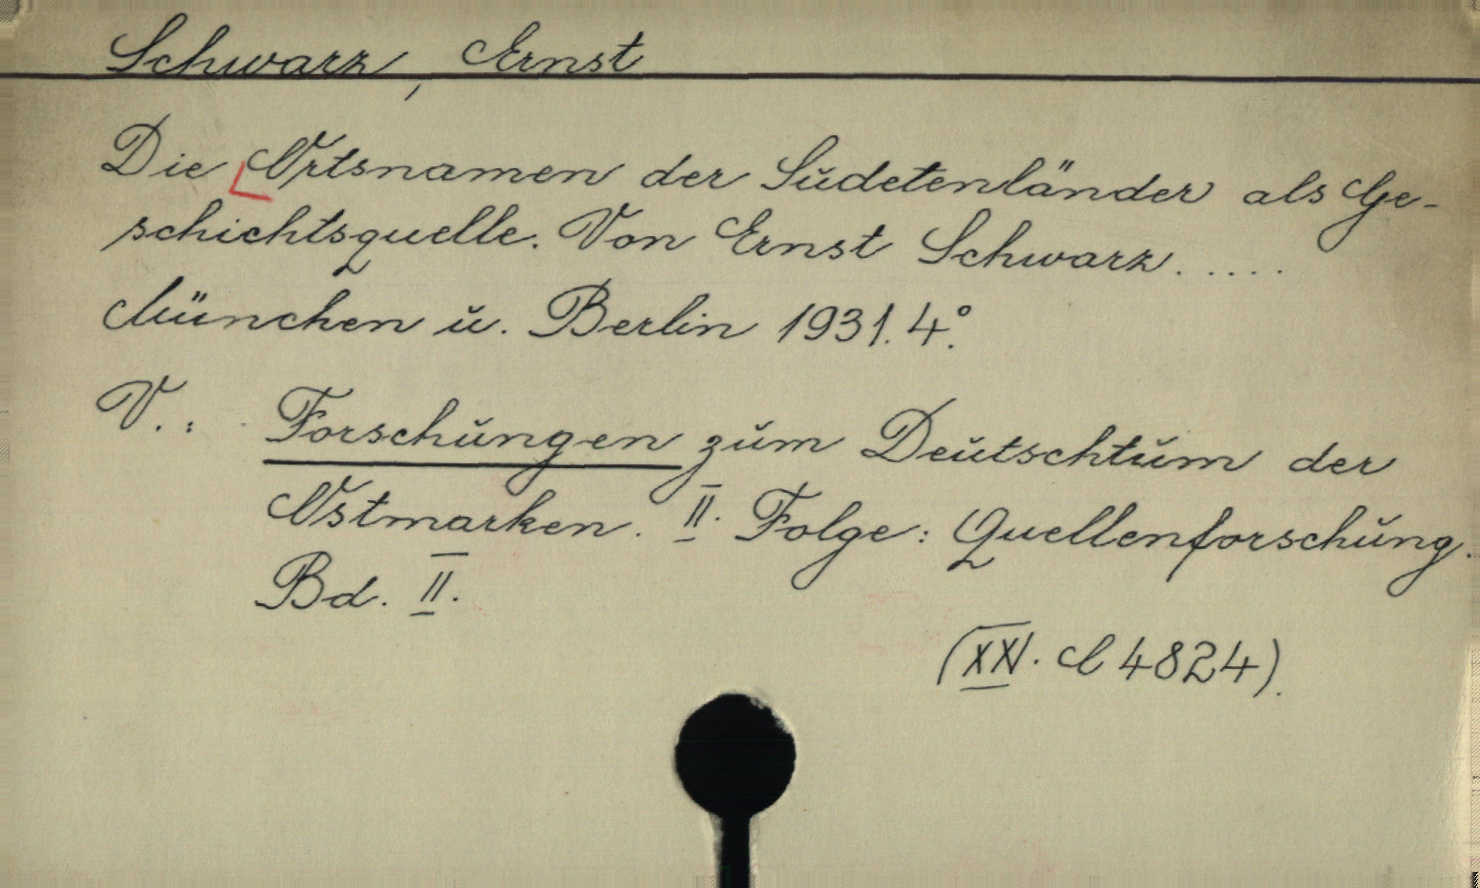 Schwarz, Ernst
Die Ortsnamen der Sudetenländer als Ge-
schichtsquelle. Von Ernst Schwarz. ....
München u. Berlin 1931. 4°.
V.: Forschungen zum Deutschtum der
Ostmarken. II. Folge: Quellenforschung.
Bd. II.
(XX. C 4824).